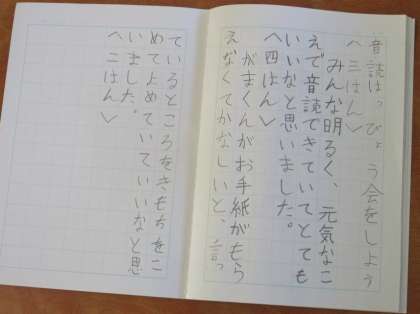 音読はっぴょう会をしよう
〈三はん〉
みんな明るく、元気なこ
えで音読できていてとても
いいなと思いました。
〈四はん〉
がまくんがお手紙がもら
えなくてかなしいと、言っ
ているところをきもちをこ
めてよめていていいなと思
いました。
〈二はん〉